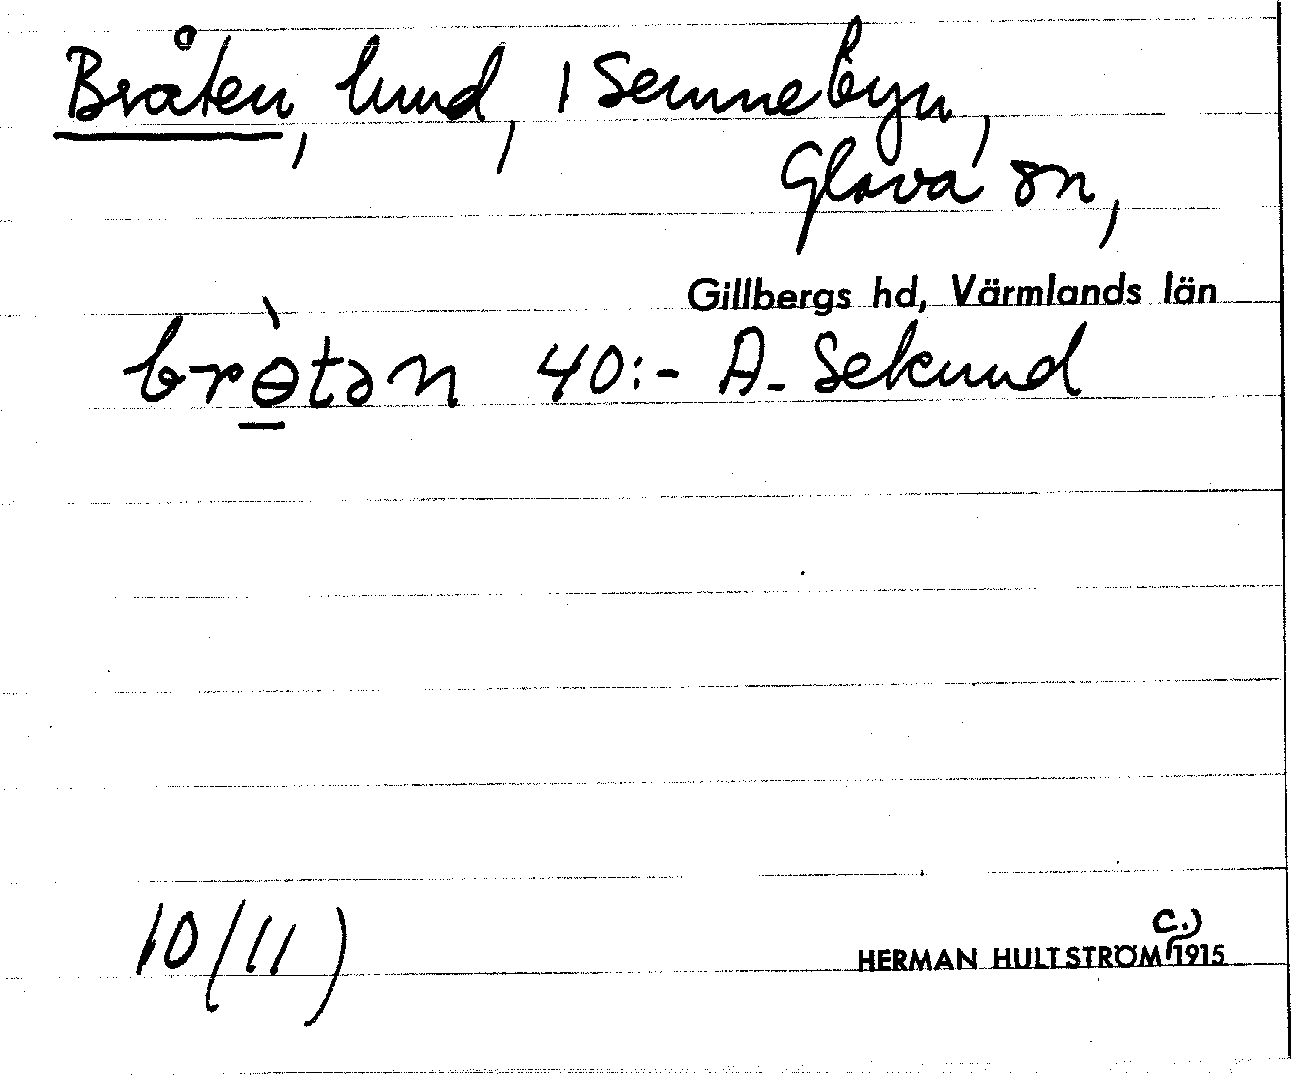 Bråten, lund, i Semnebyn,
Glava sn,
Gillbergs hd, Värmlands län
brɵ̀tən 40:- A. Sekund
10/11)
c.)
HERMAN HULTSTRÖM 1915